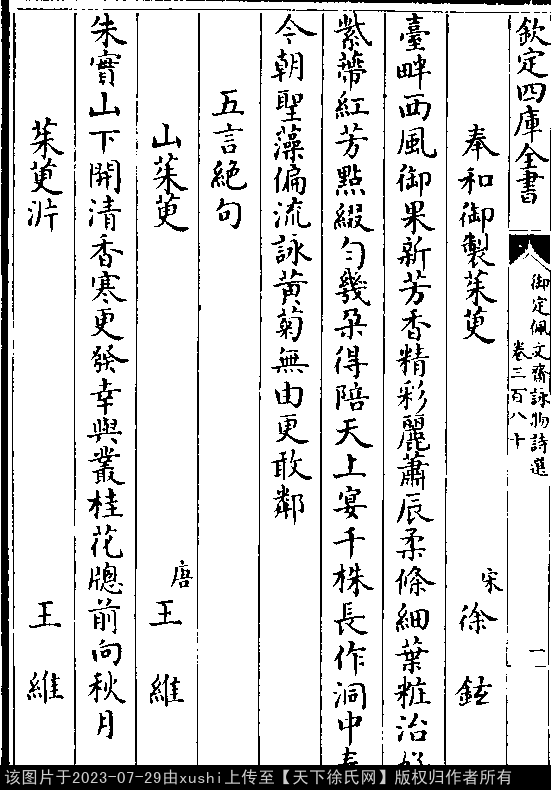 欽定四庫全書
御定佩文齋詠物詩選
卷三百八十
一
奉和御製茱萸 宋 徐鉉
臺畔西風御果新芳香精彩麗蕭辰柔條細葉粧治好
紫蔕紅芳點綴勻幾朶得陪天上宴千株長作洞中春
今朝聖藻偏流詠黃菊無由更敢鄰
五言絶句
山茱萸 唐 王維
朱實山下開清香寒更發幸與叢桂花牕前向秋月
茱萸沜 王維
该图片于2023-07-29由xushi上传至【天下徐氏网】版权归作者所有